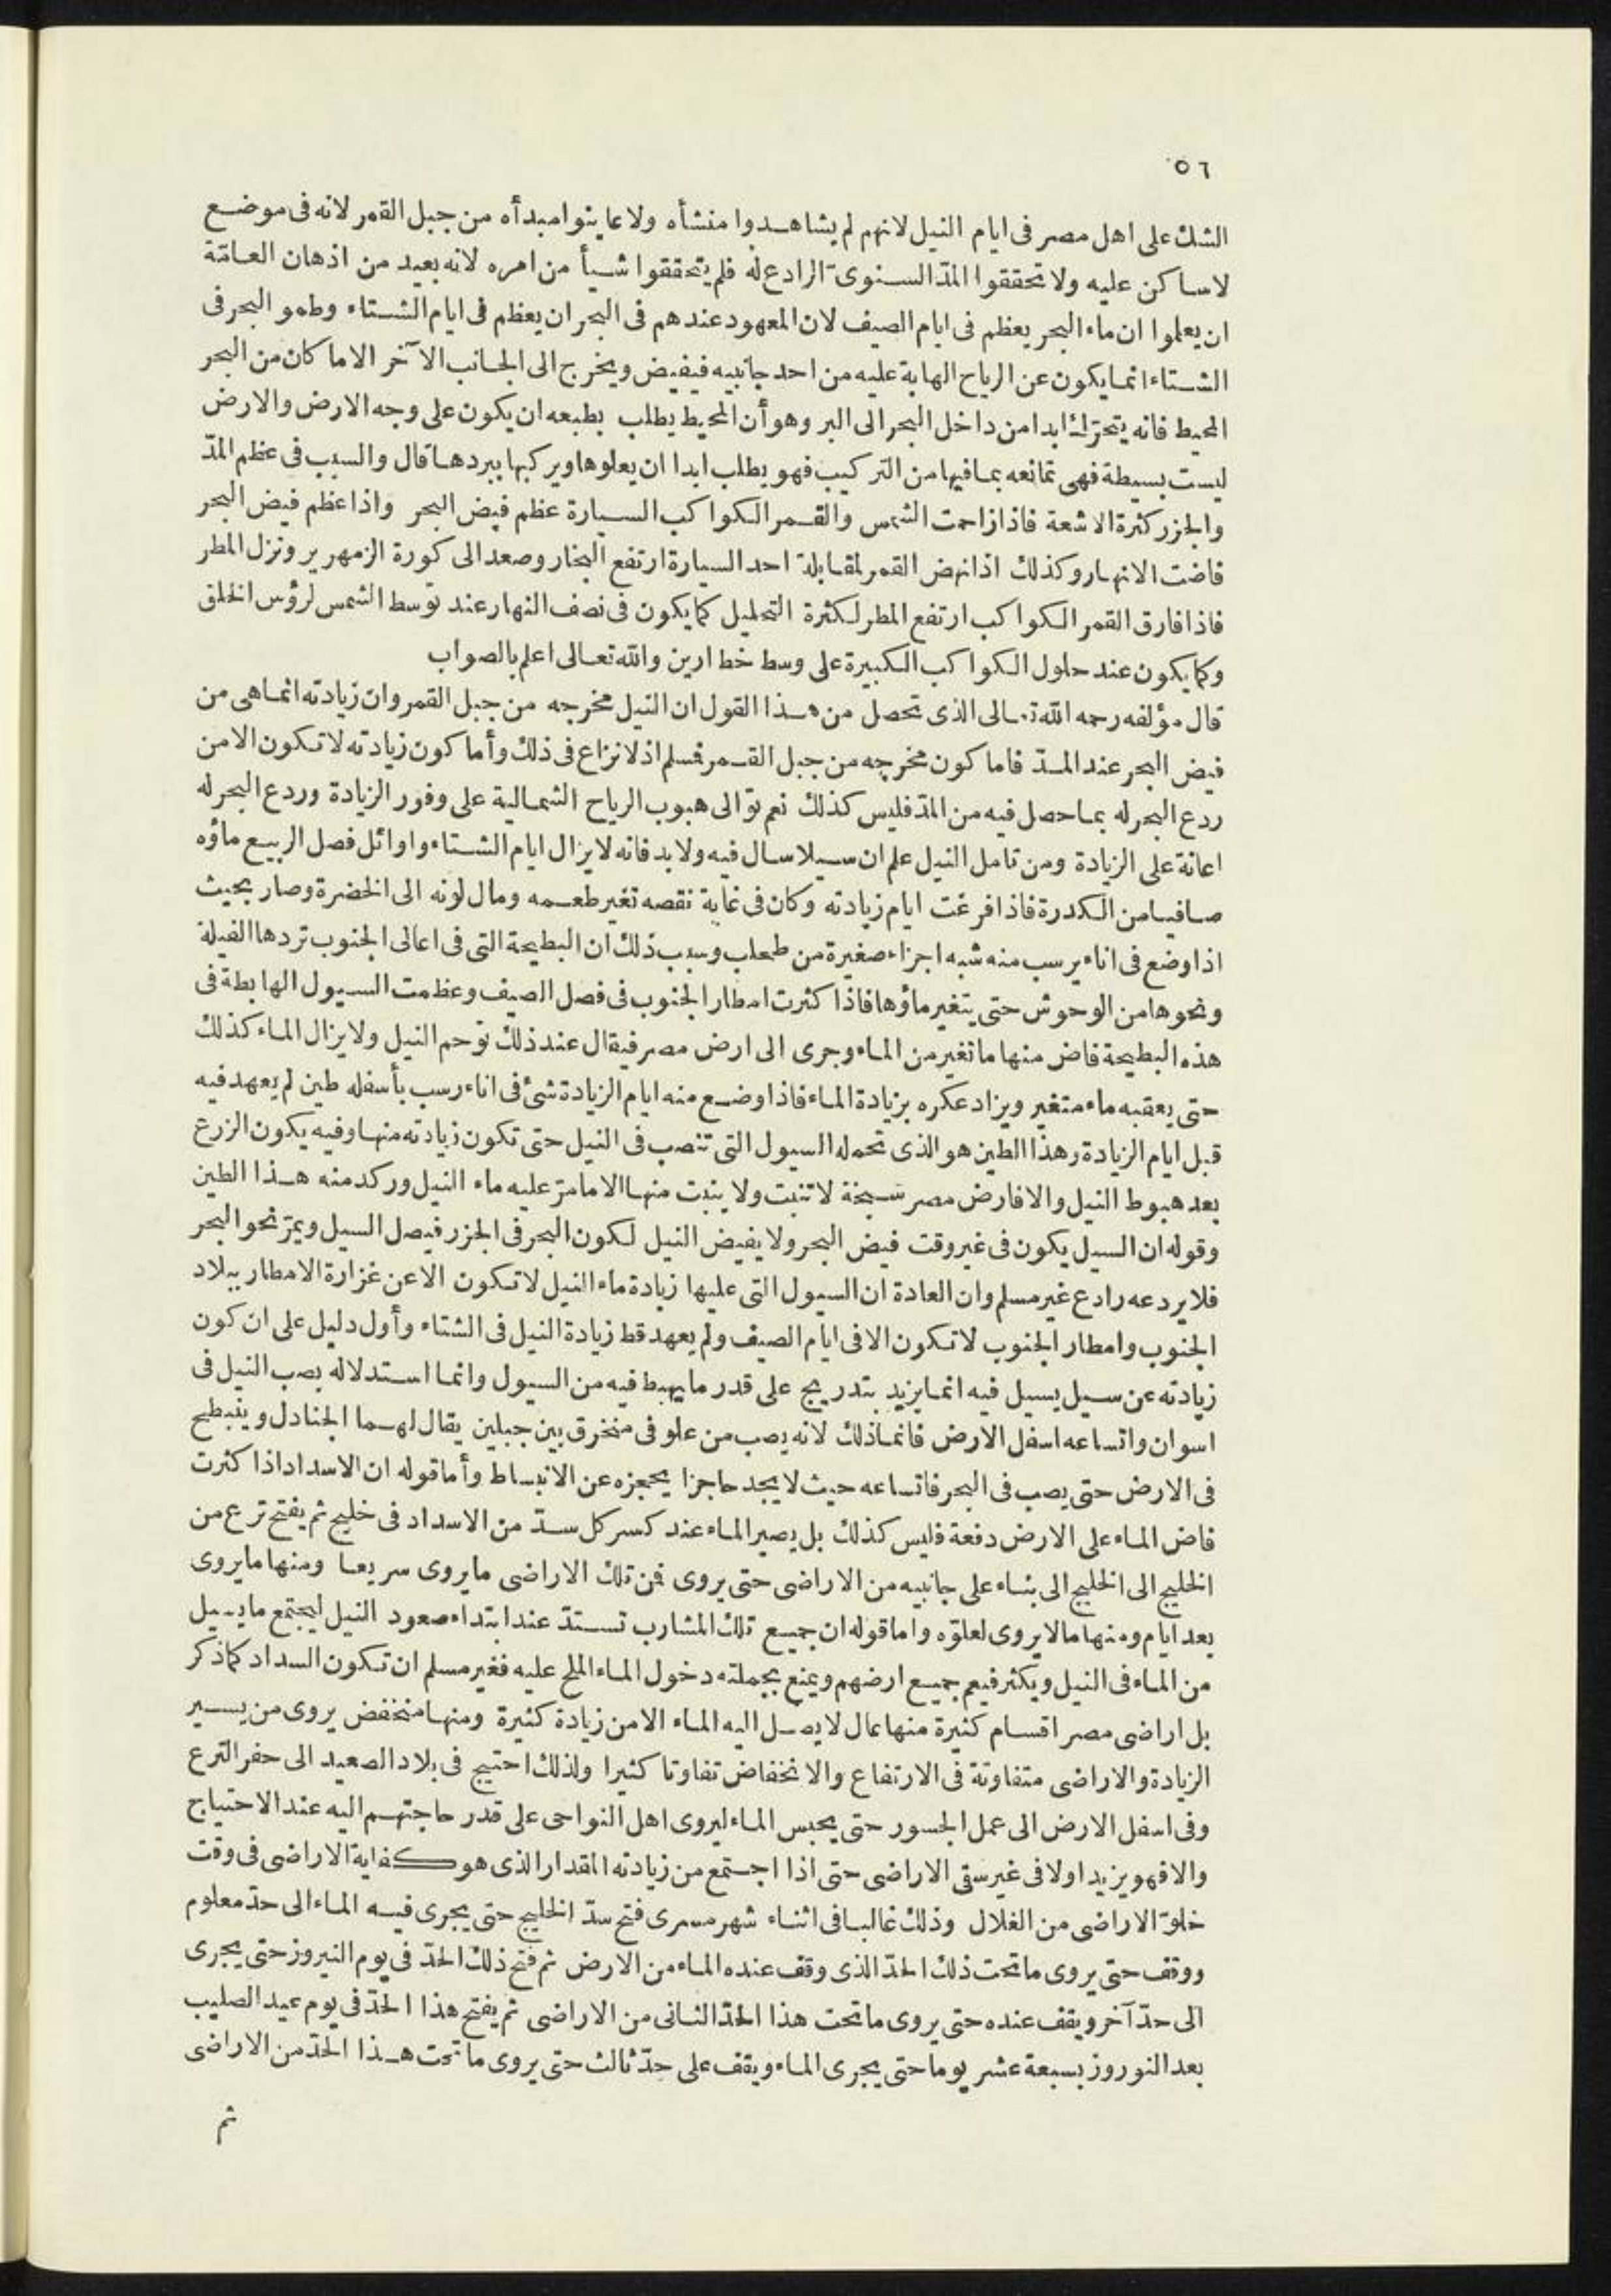 ٥٦
الشك على اهل مصر فى ايام النيل لانهم لم يشاهدوا منشأه ولا عاينوا مبدأه من جبل القمر لانه فى موضع
لا ساكن عليه ولا تحققوا المدّ السنوىّ الرادع له فلم يتحققوا شيأ من امره لانه بعيد من اذهان العامّة
ان يعلموا ان ماء البحر يعظم فى ايام الصيف لان المعهود عندهم فى البحر ان يعظم فى ايام الشتاء وطمو البحر فى
الشتاء انما يكون عن الرياح الهابة عليه من احد جانبيه فيفيض ويخرج الى الجانب الآخر الا ما كان من البحر
المحيط فانه يتحرّك ابدا من داخل البحر الى البر وهو أن المحيط يطلب بطبعه ان يكون على وجه الارض والارض
ليست بسيطة فهى تمانعه بما فيها من التركيب فهو يطلب ابدا ان يعلوها ويركبها ببردها قال والسبب فى عظم المدّ
والجزر كثرة الاشعة فاذا زاحمت الشمس والقمر الكواكب السيارة عظم فيض البحر واذا عظم فيض البحر
فاضت الانهار وكذلك اذا نهض القمر لمقابلة احد السيارة ارتفع البخار وصعد الى كورة الزمهرير ونزل المطر
فاذا فارق القمر الكواكب ارتفع المطر لكثرة التحليل كما يكون فى نصف النهار عند توسط الشمس لرؤس الخلق
وكما يكون عند حلول الكواكب الكبيرة على وسط خط ارين والله تعالى اعلم بالصواب
قال مؤلفه رحمه الله تعالى الذى تحصل من هذا القول ان النيل مخرجه من جبل القمر وان زيادته انما هى من
فيض البحر عند المدّ فاما كون مخرجه من جبل القمر فسلم اذ لا نزاع فى ذلك وأما كون زيادته لا تكون الا من
ردع البحر له بما حصل فيه من المدّ فليس كذلك نعم توالى هبوب الرياح الشمالية على وفور الزيادة وردع البحر له
اعانة على الزيادة ومن تامل النيل علم ان سيلا سال فيه ولا بد فانه لا يزال ايام الشتاء واوائل فصل الربيع ماؤه
صافيا من الكدرة فاذا فرغت ايام زيادته وكان فى غاية نقصه تغير طعمه ومال لونه الى الخضرة وصار بحيث
اذا وضع فى اناء يرسب منه شبه اجزاء صغيرة من طحلب وسبب ذلك ان البطيحة التى فى اعالى الجنوب تردها الفيلة
ونحوها من الوحوش حتى يتغير ماؤها فاذا كثرت امطار الجنوب فى فصل الصيف وعظمت السيول الهابطة فى
هذه البطيحة فاض منها ما تغير من الماء وجرى الى ارض مصر فيقال عند ذلك توحم النيل ولا يزال الماء كذلك
حتى يعقبه ماء متغير ويزاد عكره بزيادة الماء فاذا وضع منه ايام الزيادة شئ فى اناء رسب بأسفله طين لم يعهد فيه
قبل ايام الزيادة وهذا الطين هو الذى تحمله السيول التى تنصب فى النيل حتى تكون زيادته منها وفيه يكون الزرع
بعد هبوط النيل والا فارض مصر سبخة لا تنبت ولا ينبت منها الا ما مرّ عليه ماء النيل وركد منه هذا الطين
وقوله ان السيل يكون فى غير وقت فيض البحر ولا يفيض النيل لكون البحر فى الجزر فيصل السيل ويمرّ نحو البحر
فلا يردعه رادع غير مسلم وان العادة ان السيول التى عليها زيادة ماء النيل لا تكون الا عن غزارة الامطار ببلاد
الجنوب وامطار الجنوب لا تكون الا فى ايام الصيف ولم يعهد قط زيادة النيل فى الشتاء وأول دليل على ان كون
زيادته عن سيل يسيل فيه انما يزيد بتدريج على قدر ما يهبط فيه من السيول وانما استدلاله بصب النيل فى
اسوان واتساعه اسفل الارض فانما ذلك لانه يصب من علو فى منخرق بين جبلين يقال لهما الجنادل وينبطح
فى الارض حتى يصب فى البحر فاتساعه حيث لا يجد حاجزا يحجزه عن الانبساط وأما قوله ان الاسداد اذا كثرت
فاض الماء على الارض دفعة فليس كذلك بل يصير الماء عند كسر كل سدّ من الاسداد فى خليج ثم يفتح ترع من
الخليج الى الخليج الى بناء على جانبيه من الاراضى حتى يروى فمن تلك الاراضى ما يروى سريعا ومنها ما يروى
بعد ايام ومنها ما لا يروى لعلوّه واما قوله ان جميع تلك المشارب تستدّ عند ابتداء صعود النيل ليجتمع ما يسيل
من الماء فى النيل ويكثر فيعم جميع ارضهم ويمنع بجملته دخول الماء الملح عليه فغير مسلم ان تكون السداد كما ذكر
بل اراضى مصر اقسام كثيرة منها عال لا يصل اليه الماء الا من زيادة كثيرة ومنها منخفض يروى من يسير
الزيادة والاراضى متفاوتة فى الارتفاع والانخفاض تفاوتا كثيرا ولذلك احتيج فى بلاد الصعيد الى حفر الترع
وفى اسفل الارض الى عمل الجسور حتى يحبس الماء ليروى اهل النواحى على قدر حاجتهم اليه عند الاحتياج
والا فهو يزيد اولا فى غير سقى الاراضى حتى اذا اجتمع من زيادته المقدار الذى هو كفاية الاراضى فى وقت
خلوّ الاراضى من الغلال وذلك غالبا فى اثناء شهر مسرى فتح سدّ الخليج حتى يجرى فيه الماء الى حدّ معلوم
ووقف حتى يروى ما تحت ذلك الحدّ الذى وقف عنده الماء من الارض ثم فتح ذلك الحدّ فى يوم النيروز حتى يجرى
الى حدّ آخر ويقف عنده حتى يروى ما تحت هذا الحدّ الثانى من الاراضى ثم يفتح هذا الحدّ فى يوم عيد الصليب
بعد النوروز بسبعة عشر يوما حتى يجرى الماء ويقف على حدّ ثالث حتى يروى ما تحت هذا الحدّ من الاراضى
ثم